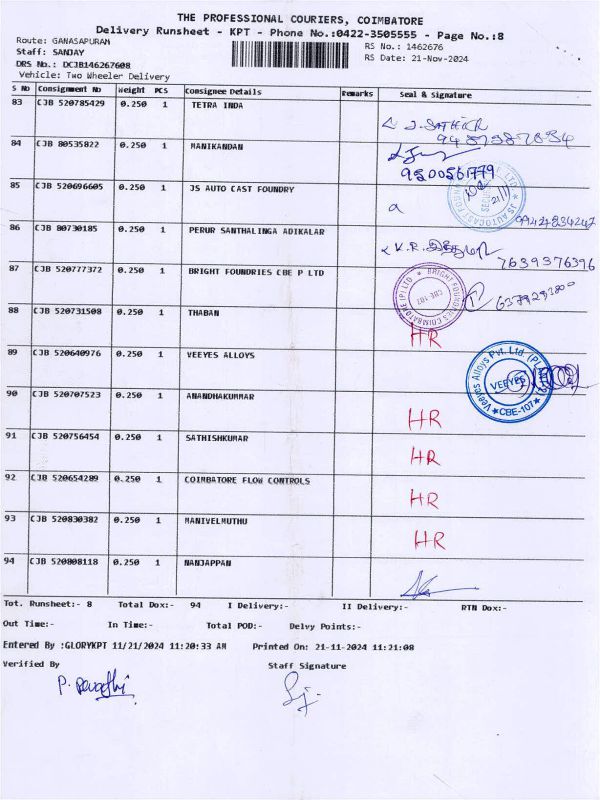 THE PROFESSIONAL COURIERS, COIMBATORE
Delivery Runsheet - KPT - Phone No.:0422-3505555 - Page No.:8
Route: GANASAPURAM
RS No.: 1462676
Staff: SANJAY
RS Date: 21-Nov-2024
DRS No.: DCJB146267608
Vehicle: Two Wheeler Delivery
S No Consignment No Weight PCS Consignee Details Remarks Seal & Signature
83 CJB 520785429 0.250 1 TETRA INDA
84 CJB 80535822 0.250 1 MANIKANDAN
9500561779
85 CJB 520696605 0.250 1 JS AUTO CAST FOUNDRY
86 CJB 80730185 0.250 1 PERUR SANTHALINGA ADIKALAR
7639376396
87 CJB 520777372 0.250 1 BRIGHT FOUNDRIES CBE P LTD
BRIGHT FOUNDRIES COIMBATORE (P) LTD
CBE-107
88 CJB 520731508 0.250 1 THABAN HR
89 CJB 520640976 0.250 1 VEEYES ALLOYS
Veeyes Alloys Pvt. Ltd.
VEEYES
CBE-107
90 CJB 520707523 0.250 1 ANANDHAKUMMAR HR
91 CJB 520756454 0.250 1 SATHISHKUMAR HR
92 CJB 520654289 0.250 1 COIMBATORE FLOW CONTROLS HR
93 CJB 520830382 0.250 1 MANIVELMUTHU HR
94 CJB 520808118 0.250 1 NANJAPPAN
Tot. Runsheet:- 8 Total Dox:- 94 I Delivery:- II Delivery:- RTN Dox:-
Out Time:- In Time:- Total POD:- Delvy Points:-
Entered By :GLORYKPT 11/21/2024 11:20:33 AM Printed On: 21-11-2024 11:21:08
Verified By Staff Signature